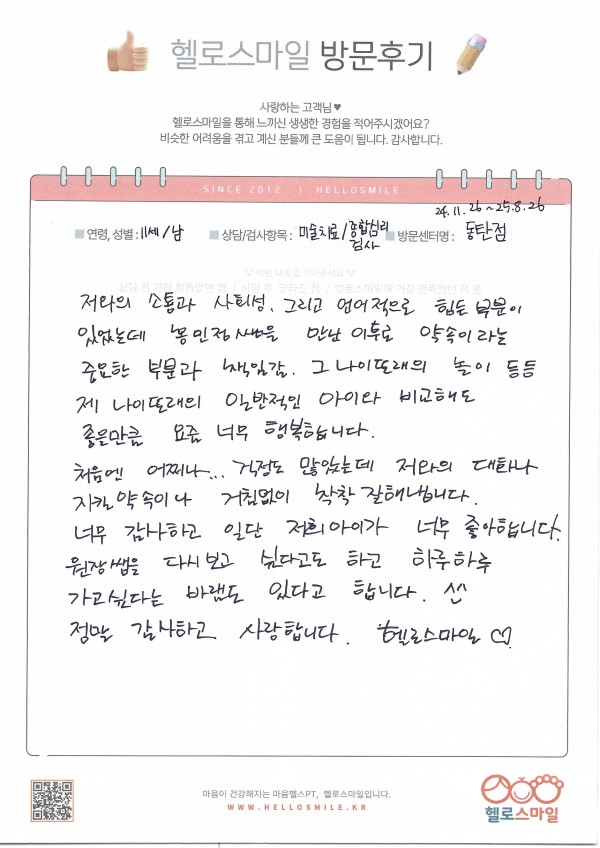 헬로스마일 방문후기
사랑하는 고객님 ♥
헬로스마일을 통해 느끼신 생생한 경험을 적어주시겠어요?
비슷한 어려움을 겪고 계신 분들께 큰 도움이 됩니다. 감사합니다.
SINCE 2012 | HELLOSMILE
24.11.26 ~ 25.8.26
연령, 성별 : 11세/남 상담/검사항목 : 미술치료/종합심리검사 방문센터명 : 동탄점
저와의 소통과 사회성, 그리고 언어적으로 힘든 부분이
있었는데 봉민정쌤을 만난 이후로 약속이라는
중요한 부분과 책임감, 그 나이또래의 놀이 등등
제 나이또래의 일반적인 아이와 비교해도
좋을만큼 요즘 너무 행복합니다.
처음엔 어찌나... 걱정도 많았는데 저와의 대화나
지킬약속이나 거침없이 착착 잘해냅니다.
너무 감사하고 일단 저희아이가 너무 좋아합니다.
원장쌤을 다시보고 싶다고도 하고 하루하루
가고싶다는 바램도 있다고 합니다. ^^
정말 감사하고 사랑합니다. 헬로스마일 ♡.
마음이 건강해지는 마음헬스PT, 헬로스마일입니다.
WWW.HELLOSMILE.KR
헬로스마일